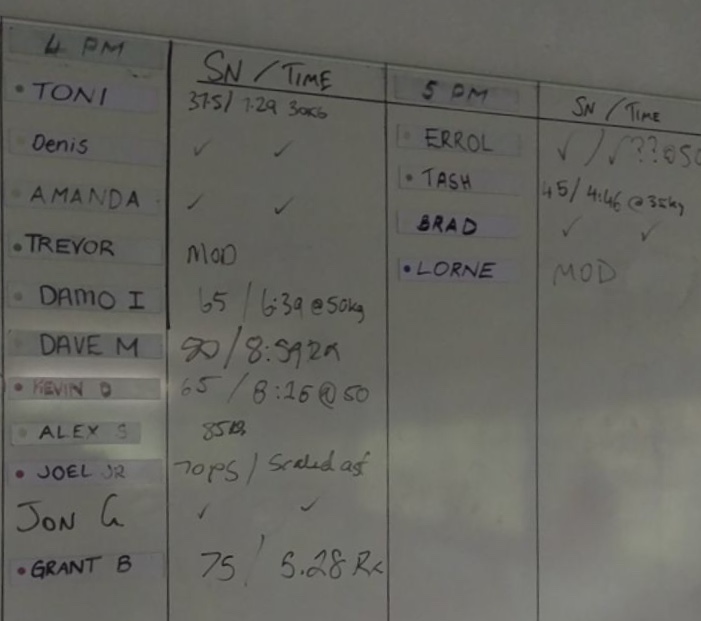 4 PM SN / TIME
TONI 37.5 / 7.29 30KG
Denis ✓ ✓
AMANDA ✓ ✓
TREVOR MOD
DAMO I 65 / 6:39 @ 50kg
DAVE M 80 / 8:59 Rx
KEVIN D 65 / 8:26 @ 50
ALEX S 85KG
JOEL JR 70 PS / Scaled asf
JON G ✓ ✓
GRANT B 75 / 5.28 Rx
5 PM SN / TIME
ERROL ✓ / ✓ ?? @ 50
TASH 45 / 4:46 @ 35kg
BRAD ✓ ✓
LORNE MOD